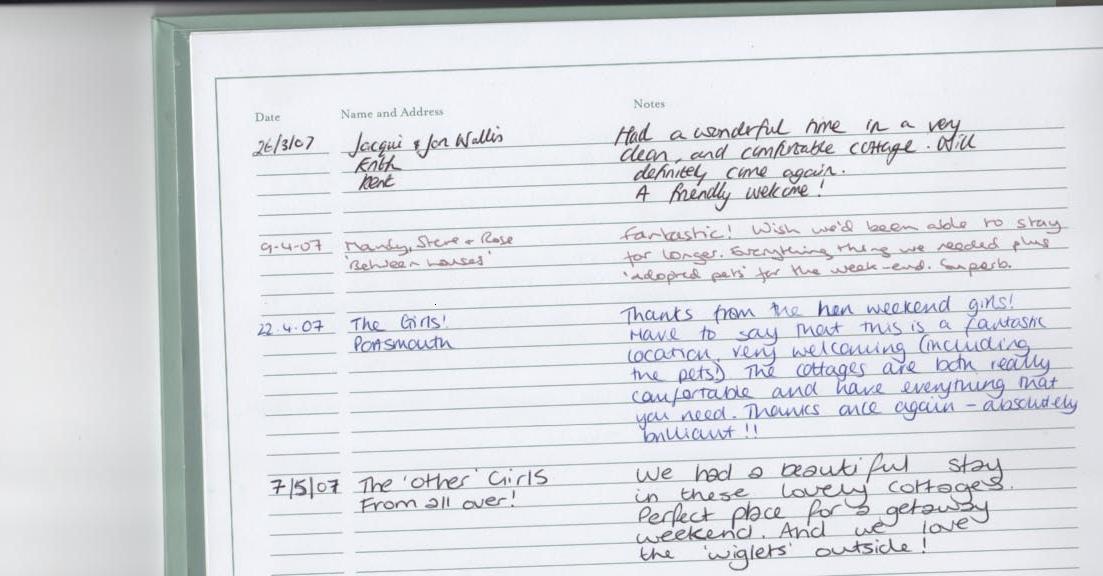 Date Name and Address Notes
26/3/07 Jacqui & Jon Wallis Had a wonderful time in a very
Erith clean, and comfortable cottage. Will
Kent definitely come again.
A friendly welcome!
9-4-07 Mandy, Steve + Rose Fantastic! Wish we'd been able to stay
'Between houses' for longer. Everything thing we needed plus
'adopted pets' for the week-end. Superb.
22.4.07 The Girls! Thanks from the hen weekend girls!
Portsmouth Have to say that this is a fantastic
location, very welcoming (including
the pets!) The cottages are both really
comfortable and have everything that
you need. Thanks once again - absolutely
brilliant!!
7/5/07 The 'other' Girls We had a beautiful stay
From all over! in these lovely cottages.
Perfect place for a getaway
weekend. And we love
the 'wiglets' outside!